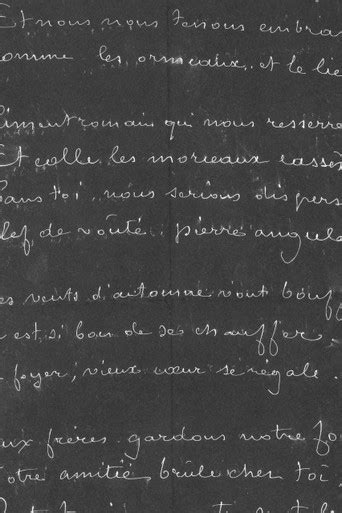 Et nous nous tenons embras
comme les ormeaux, et le lie
Ciment romain qui nous resserre
Et colle les morceaux cassé
Sans toi, nous serions dispers
lef de voûte, pierre angula
es vents d'automne m'ont bouff
est si bon de se chauffer
foyer, vieux cœur sénégale
ux frères gardons notre fo
otre amitié brûle chez toi